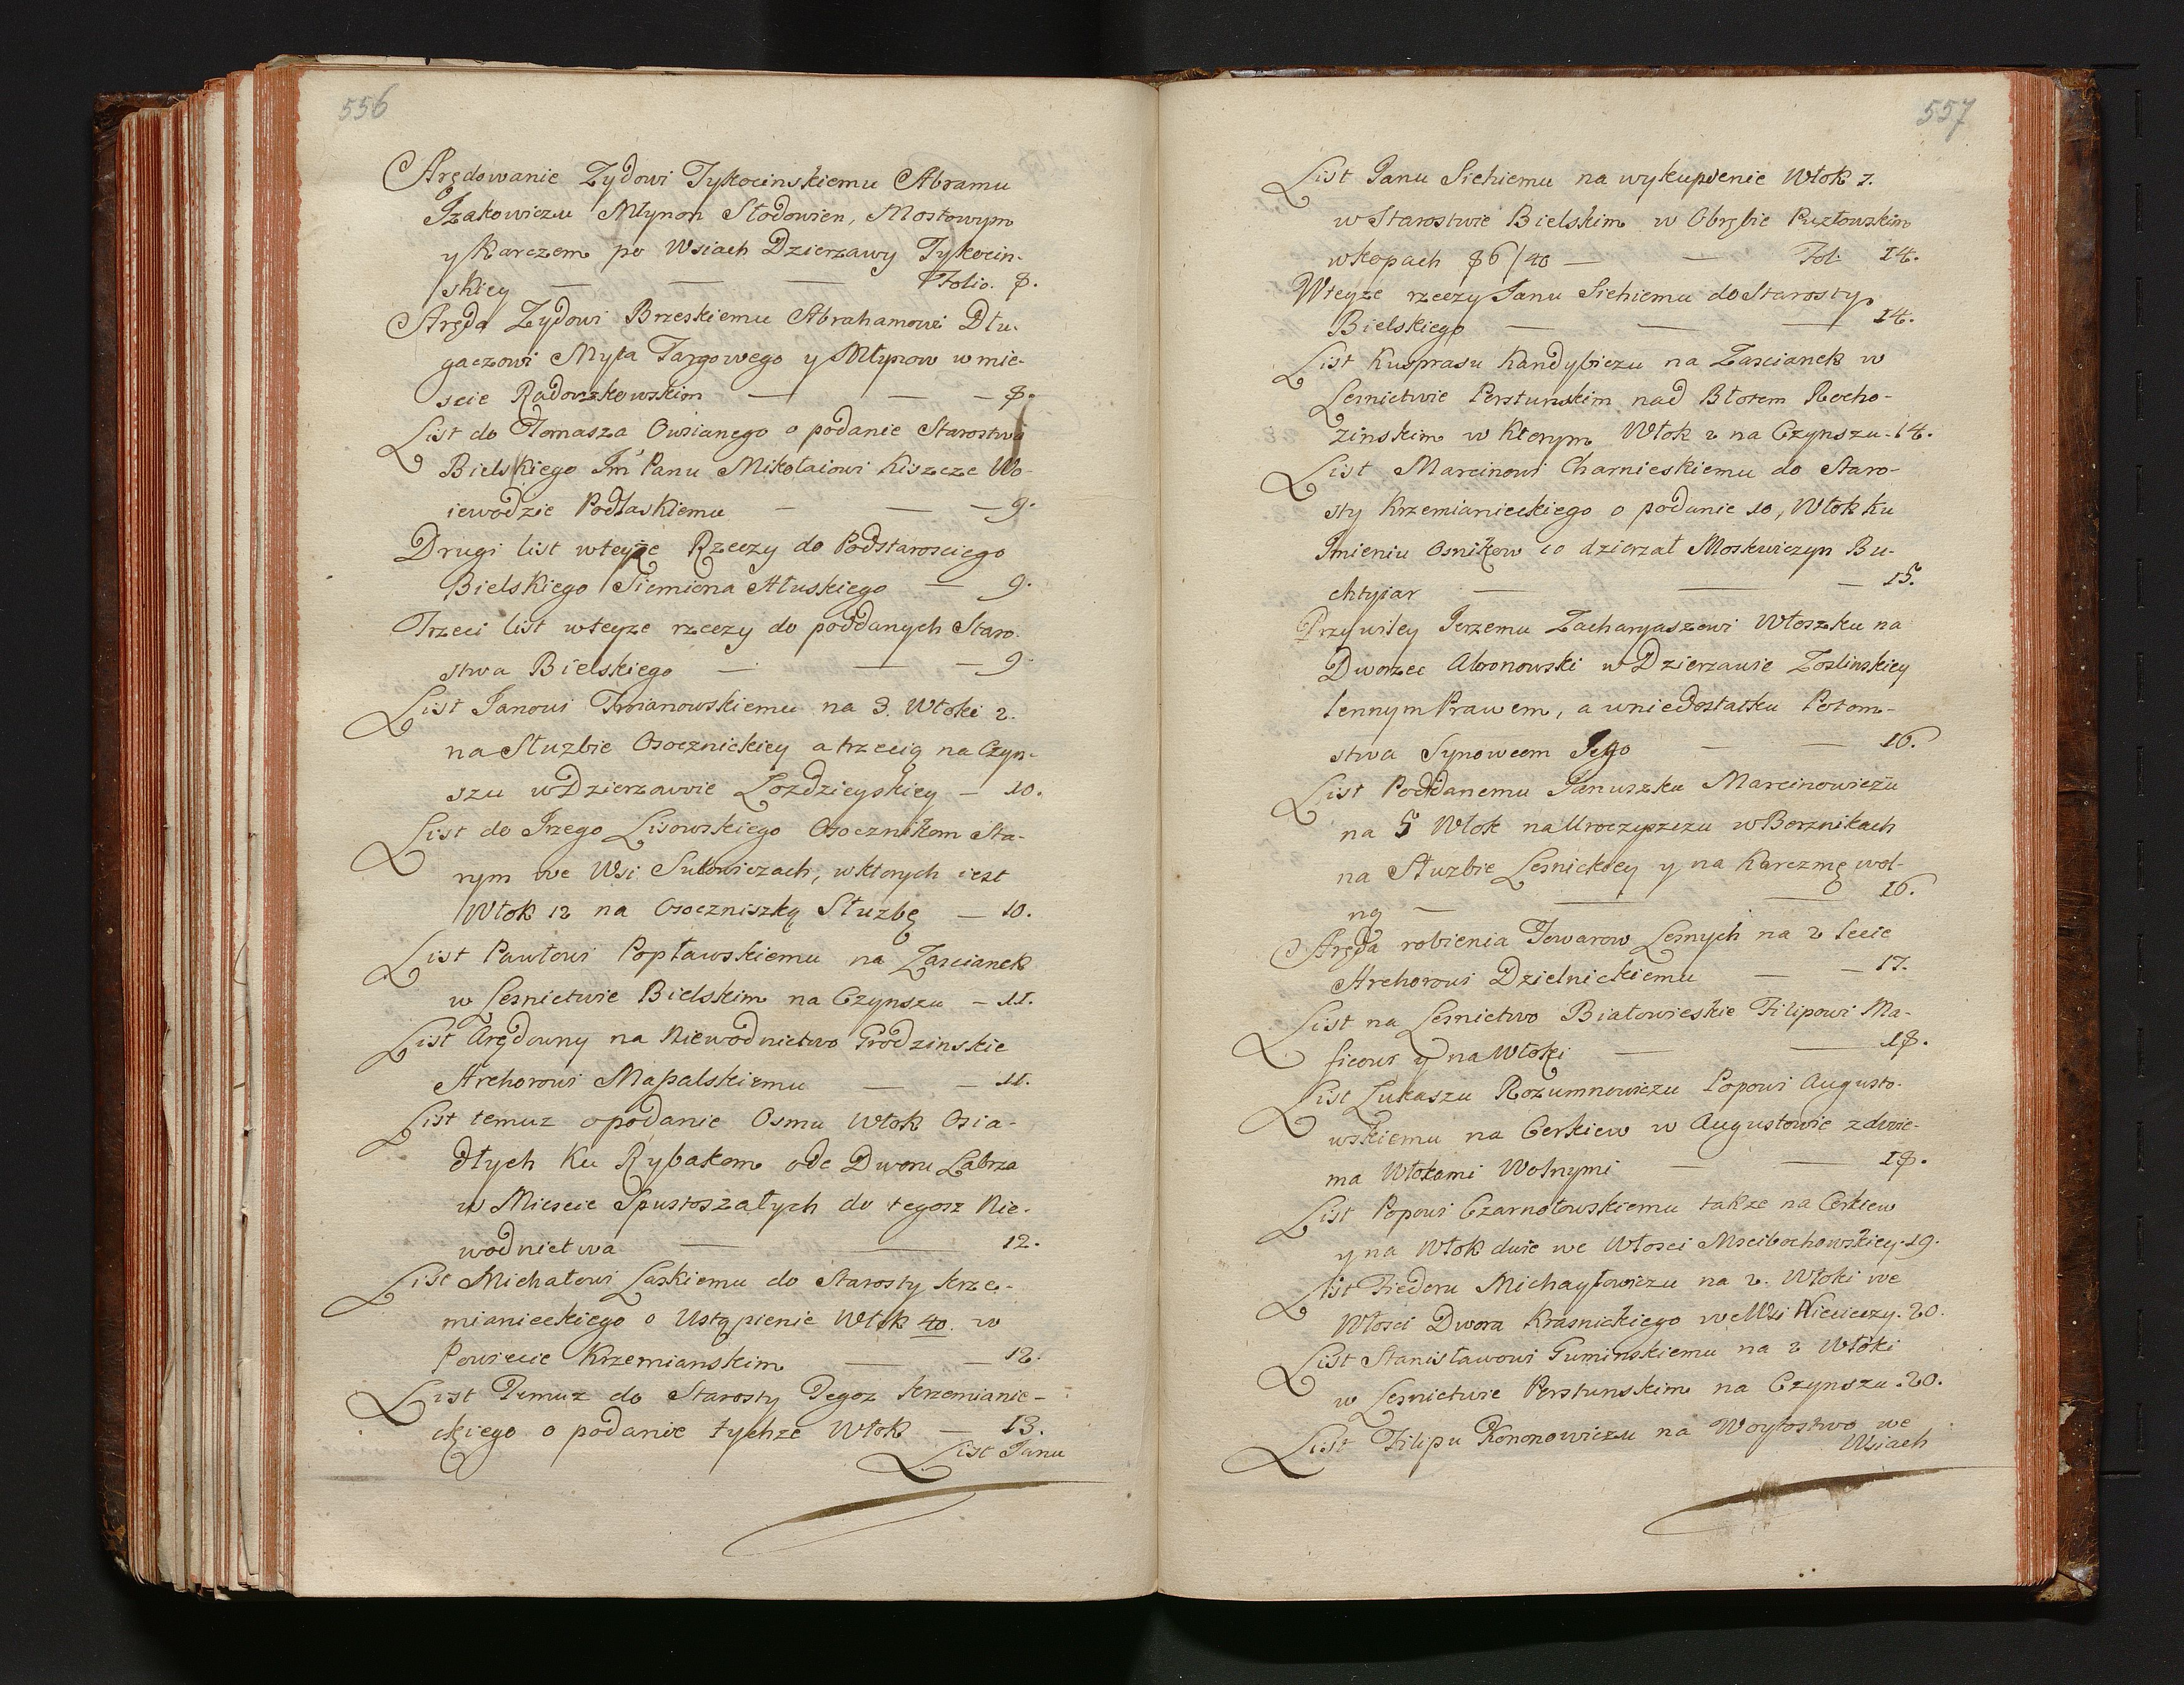 556
Arędowanie Zydowi Tykocinskiemu Abramu
Izakowiczu Młynon Słodowien, Mostowym
y Karczem po Wsiach Dzierzawy Tykocin-
skiey — — — Folio. 8.
Aręda Zydowi Brzeskiemu Abrahamowi Dłu-
gaczowi Myta Targowego y Młynow w mie-
scie Radoszkowskim — — — 8.
List do Tomasza Owsianego o podanie Starostwa
Bielskiego Im Panu Mikołaiowi Kiszcze Wo-
iewodzie Podlaskiemu — — — 9.
Drugi list wteyze Rzeczy do Podstarosciego
Bielskiego Siemiona Hłuskiego — 9.
Trzeci list wteyze rzeczy do poddanych Staro-
stwa Bielskiego — — — 9.
List Janowi Troianowskiemu na 3. Włoki 2.
na Słuzbie Osocznickiey a trzecią na Czyn-
szu w Dzierzawie Łozdzieyskiey — 10.
List do Irzego Lisowskiego Osocznikom Sta-
rym we Wsi Sutowiczach, w ktorych iest
Włok 12 na Osoczniszką Słuzbę — 10.
List Pawłowi Popławskiemu na Zascianek
w Lesnictwie Bielskim na Czynszu — 11.
List Arędowny na Niewodnictwo Grodzinskie
Archorowi Mapalskiemu — — 11.
List temuz o podanie Osmu Włok Osia-
dłych Ku Rybakom ode Dworu Łabrza
w Miescie Spustoszałych do tegosz Nie-
wodnictwa — — 12.
List Michałowi Laskiemu do Starosty Krze-
mianieckiego o Ustąpienie Włok 40. w
Powiecie Krzemianskim — — 12.
List Temuz do Starosty Tegoz Krzemianie-
ckiego o podanie tychze Włok — 13.
List Panu
557
List Panu Siehiemu na wykupienie Włok 7.
w Starostwie Bielskim w Obrębie Puzłowskim
w kopach 86/40 — — Fol: 14.
Wteyze rzeczy Panu Siehiemu do Starosty
Bielskiego — — — 14.
List Kusprasu Kandybiczu na Zascianek w
Lesnictwie Perstunskim nad Błotem Rocho-
zinskim w Ktorym Włok 2 na Czynszu. 14.
List Marcinowi Charnieskiemu do Staro-
sty Krzemianieckiego o podanie 10, Włok ku
Imieniu Osnikow co dzierzał Moskwiczyn Bu-
chtyiar — — — 15.
Przywiley Jerzemu Zacharyaszowi Włoszku na
Dworzec Abronowski w Dzierzawie Zoslinskiey
lennym Prawem, a w niedostatku Potom-
stwa Synowcom Jego — — 16.
List Poddanemu Januszku Marcinowiczu
na 5 Włok na Uroczyszczu w Borznikach
na Słuzbie Lesnickiey y na Karczmę wol-
ną — — — 16.
Aręda robienia Towarow Lesnych na 2 lecie
Archorowi Dzielnickiemu — — 17.
List na Lesnictwo Białowieskie Filipowi Ma-
ficowi y na Włoki — — 18.
List Łukaszu Rozumnowiczu Popowi Augusto-
wskiemu na Cerkiew w Augustowie z dwie-
ma Włokami Wolnymi — — 18.
List Popowi Czarnołowskiemu takze na Cerkiew
y na Włok dwie we Włosci Mscibochowskiey. 19.
List Fiedoru Michayłowiczu na 2. Włoki we
Włosci Dwora Krasnickiego we Wsi Niecieczy. 20.
List Stanisławowi Guminskiemu na 2 Włoki
w Lesnictwie Perstunskim na Czynszu. 20.
List Filipu Kononowiczu na Woytostwo we
Wsiach